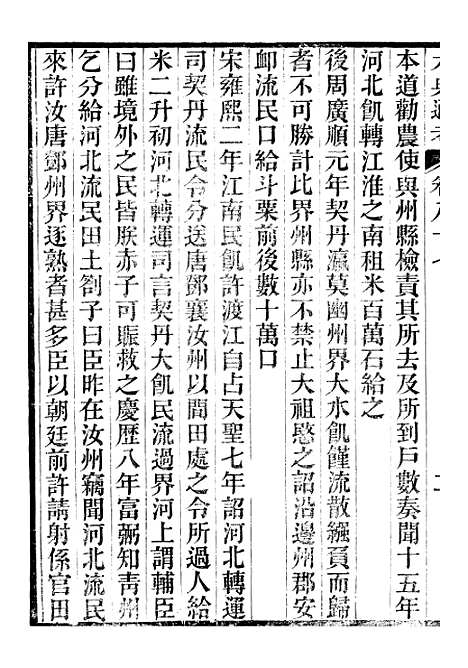 本道勸農使與州縣檢責其所去及所到戶數奏聞十五年
河北飢轉江淮之南租米百萬石給之
後周廣順元年契丹瀛莫幽州界大水飢饉流散繈負而歸
者不可勝計比界州縣亦不禁止大祖愍之詔沿邊州郡安
卹流民口給斗粟前後數十萬口
宋雍熙二年江南民飢許渡江自占天聖七年詔河北轉運
司契丹流民令分送唐鄧襄汝州以閒田處之令所過人給
米二升初河北轉運司言契丹大飢民流過界河上謂輔臣
曰雖境外之民皆朕赤子可賑救之慶歷八年富弼知靑州
乞分給河北流民田土劄子曰臣昨在汝州竊聞河北流民
來許汝唐鄧州界逐熟者甚多臣以朝廷前許請射係官田